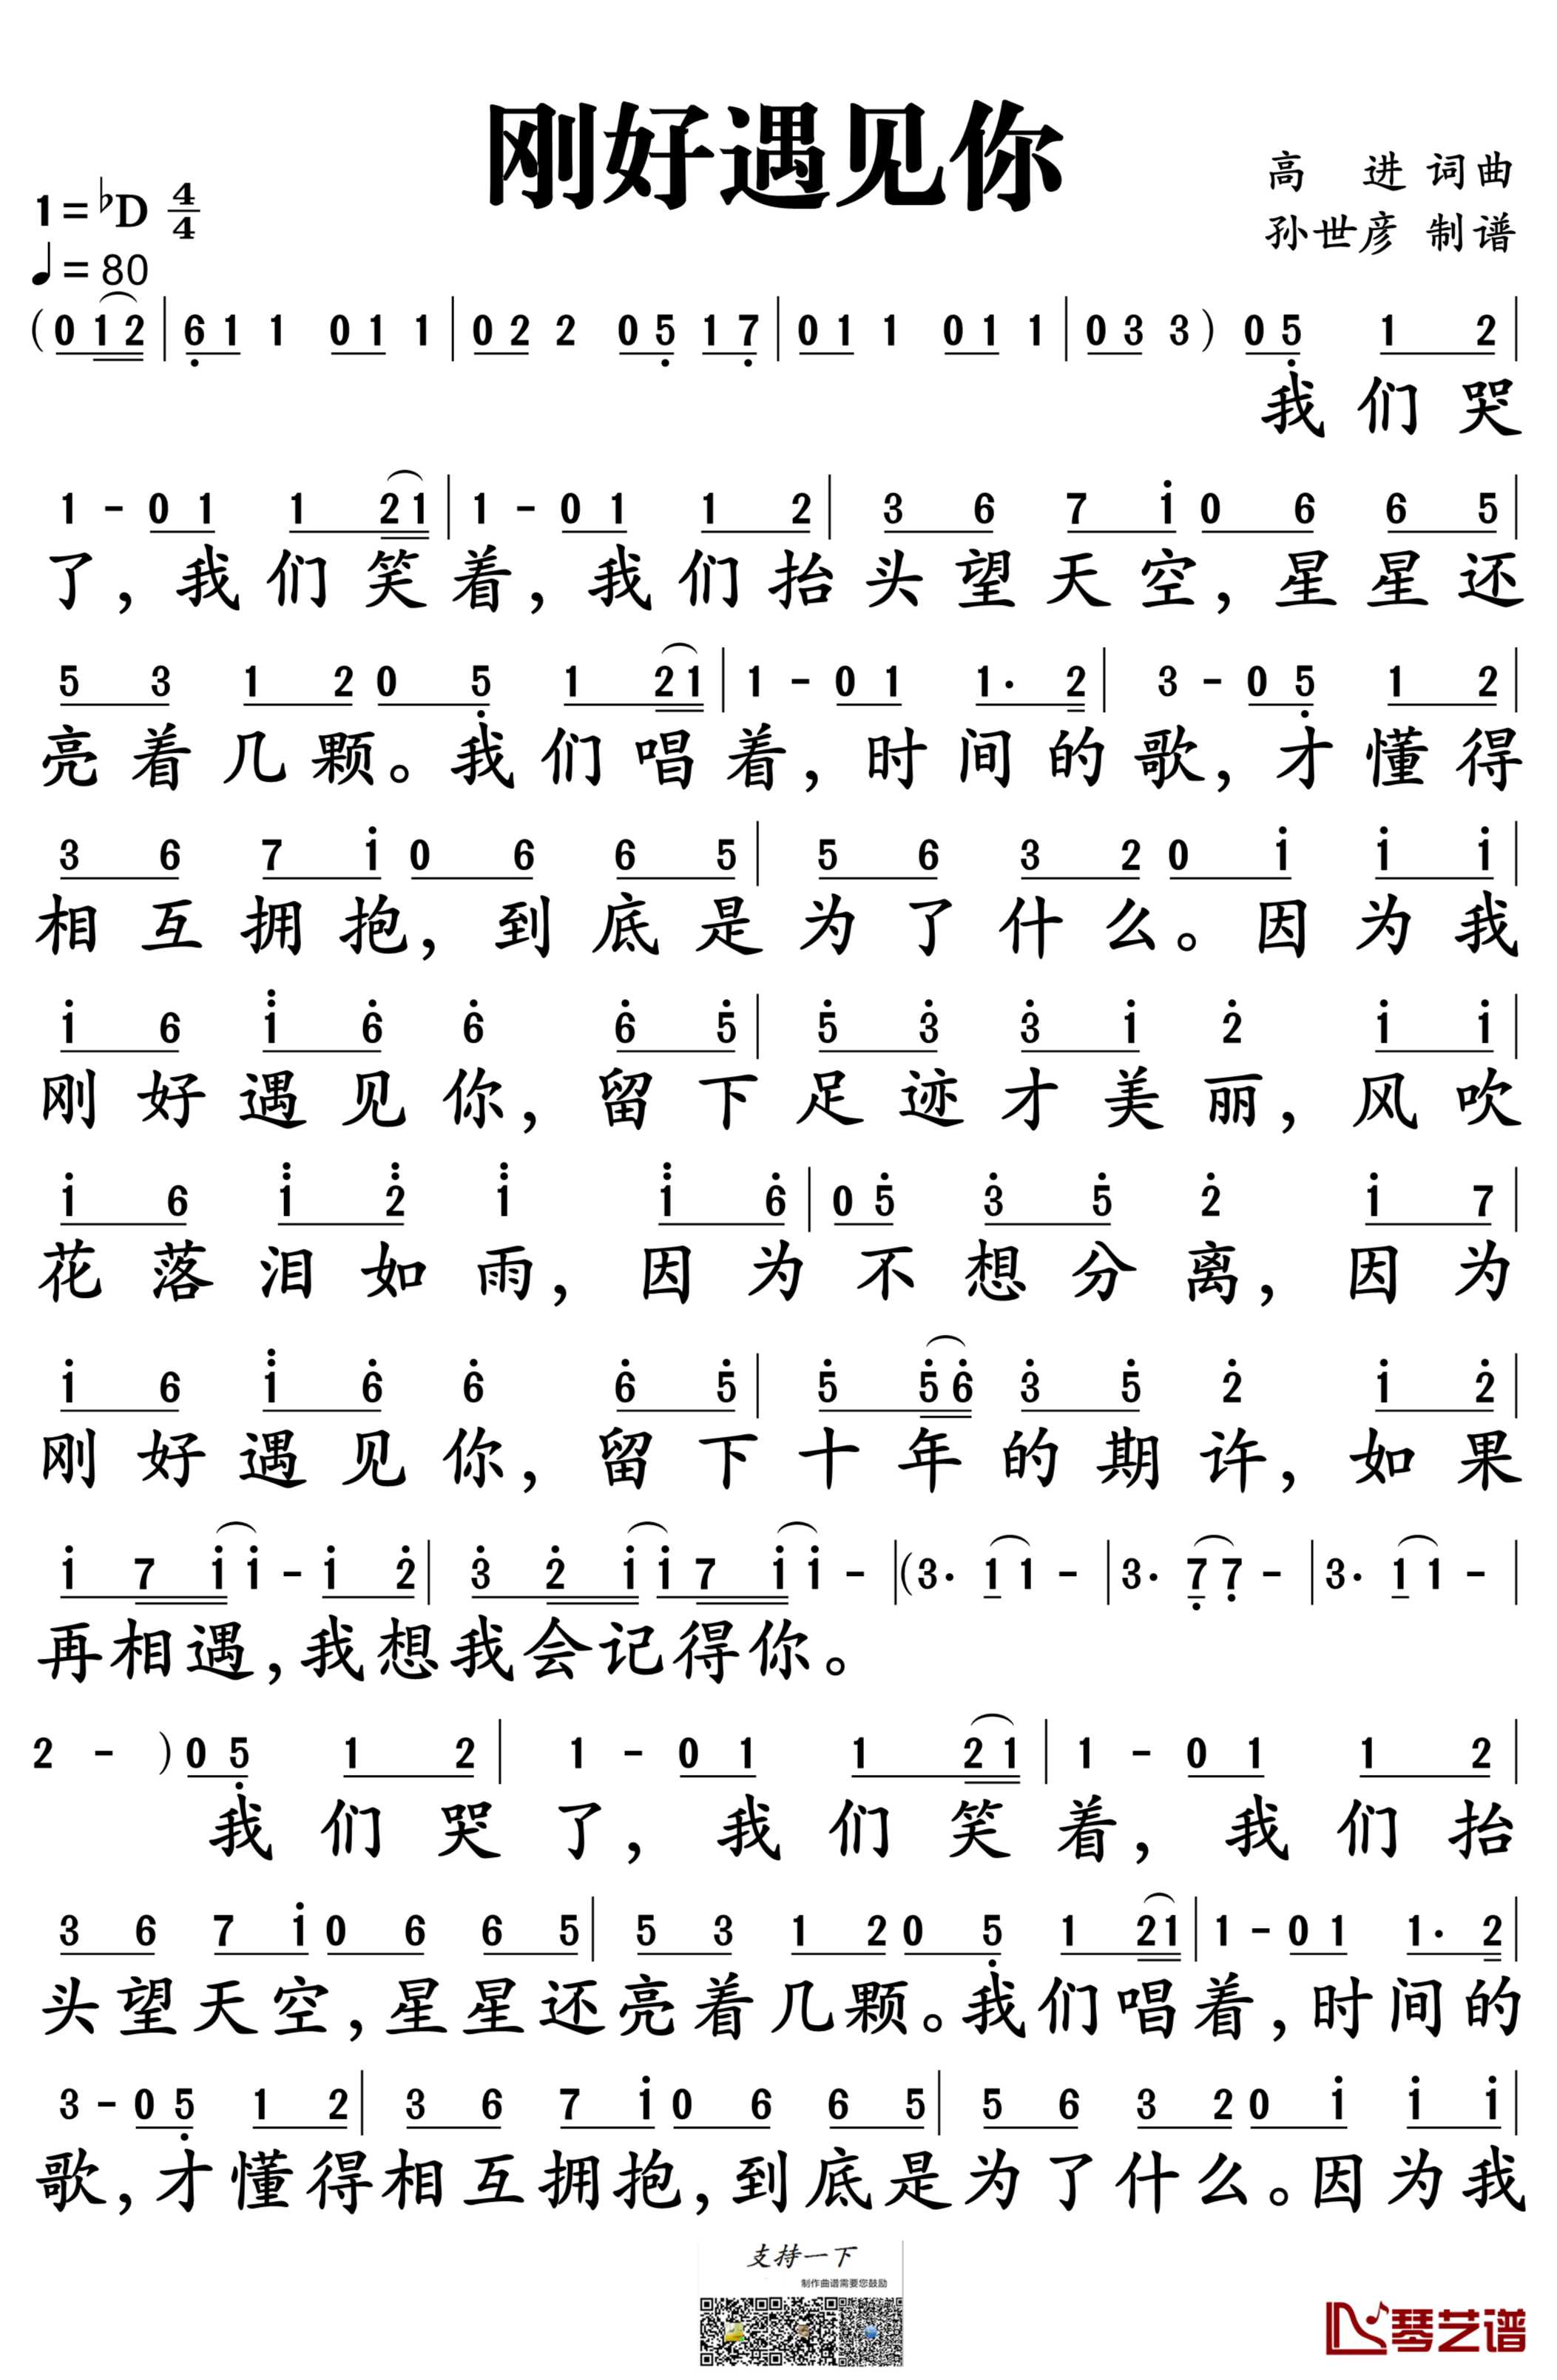 刚好遇见你
高 进 词曲
孙世彦 制谱
1=♭D 4/4
♩=80
(0 1 2 | 6 1 1 0 1 1 | 0 2 2 0 5 1 7 | 0 1 1 0 1 1 | 0 3 3) 0 5 1 2 |
我们哭
1 - 0 1 1 2 1 | 1 - 0 1 1 2 | 3 6 7 1 0 6 6 5 |
了，我们笑着，我们抬头望天空，星星还
5 3 1 2 0 5 1 2 1 | 1 - 0 1 1· 2 | 3 - 0 5 1 2 |
亮着几颗。我们唱着，时间的歌，才懂得
3 6 7 1 0 6 6 5 | 5 6 3 2 0 1 1 1 |
相互拥抱，到底是为了什么。因为我
1 6 1 6 6 6 5 | 5 3 3 1 2 1 1 |
刚好遇见你，留下足迹才美丽，风吹
1 6 1 2 1 1 6 | 0 5 3 5 2 1 7 |
花落泪如雨，因为不想分离，因为
1 6 1 6 6 6 5 | 5 5 6 3 5 2 1 2 |
刚好遇见你，留下十年的期许，如果
1 7 1 1 - 1 2 | 3 2 1 1 7 1 1 - | (3· 1 1 - | 3· 7 7 - | 3· 1 1 - |
再相遇，我想我会记得你。
2 - ) 0 5 1 2 | 1 - 0 1 1 2 1 | 1 - 0 1 1 2 |
我们哭了，我们笑着，我们抬
3 6 7 1 0 6 6 5 | 5 3 1 2 0 5 1 2 1 | 1 - 0 1 1· 2 |
头望天空，星星还亮着几颗。我们唱着，时间的
3 - 0 5 1 2 | 3 6 7 1 0 6 6 5 | 5 6 3 2 0 1 1 1 |
歌，才懂得相互拥抱，到底是为了什么。因为我
支持一下
制作曲谱需要您鼓励
琴艺谱